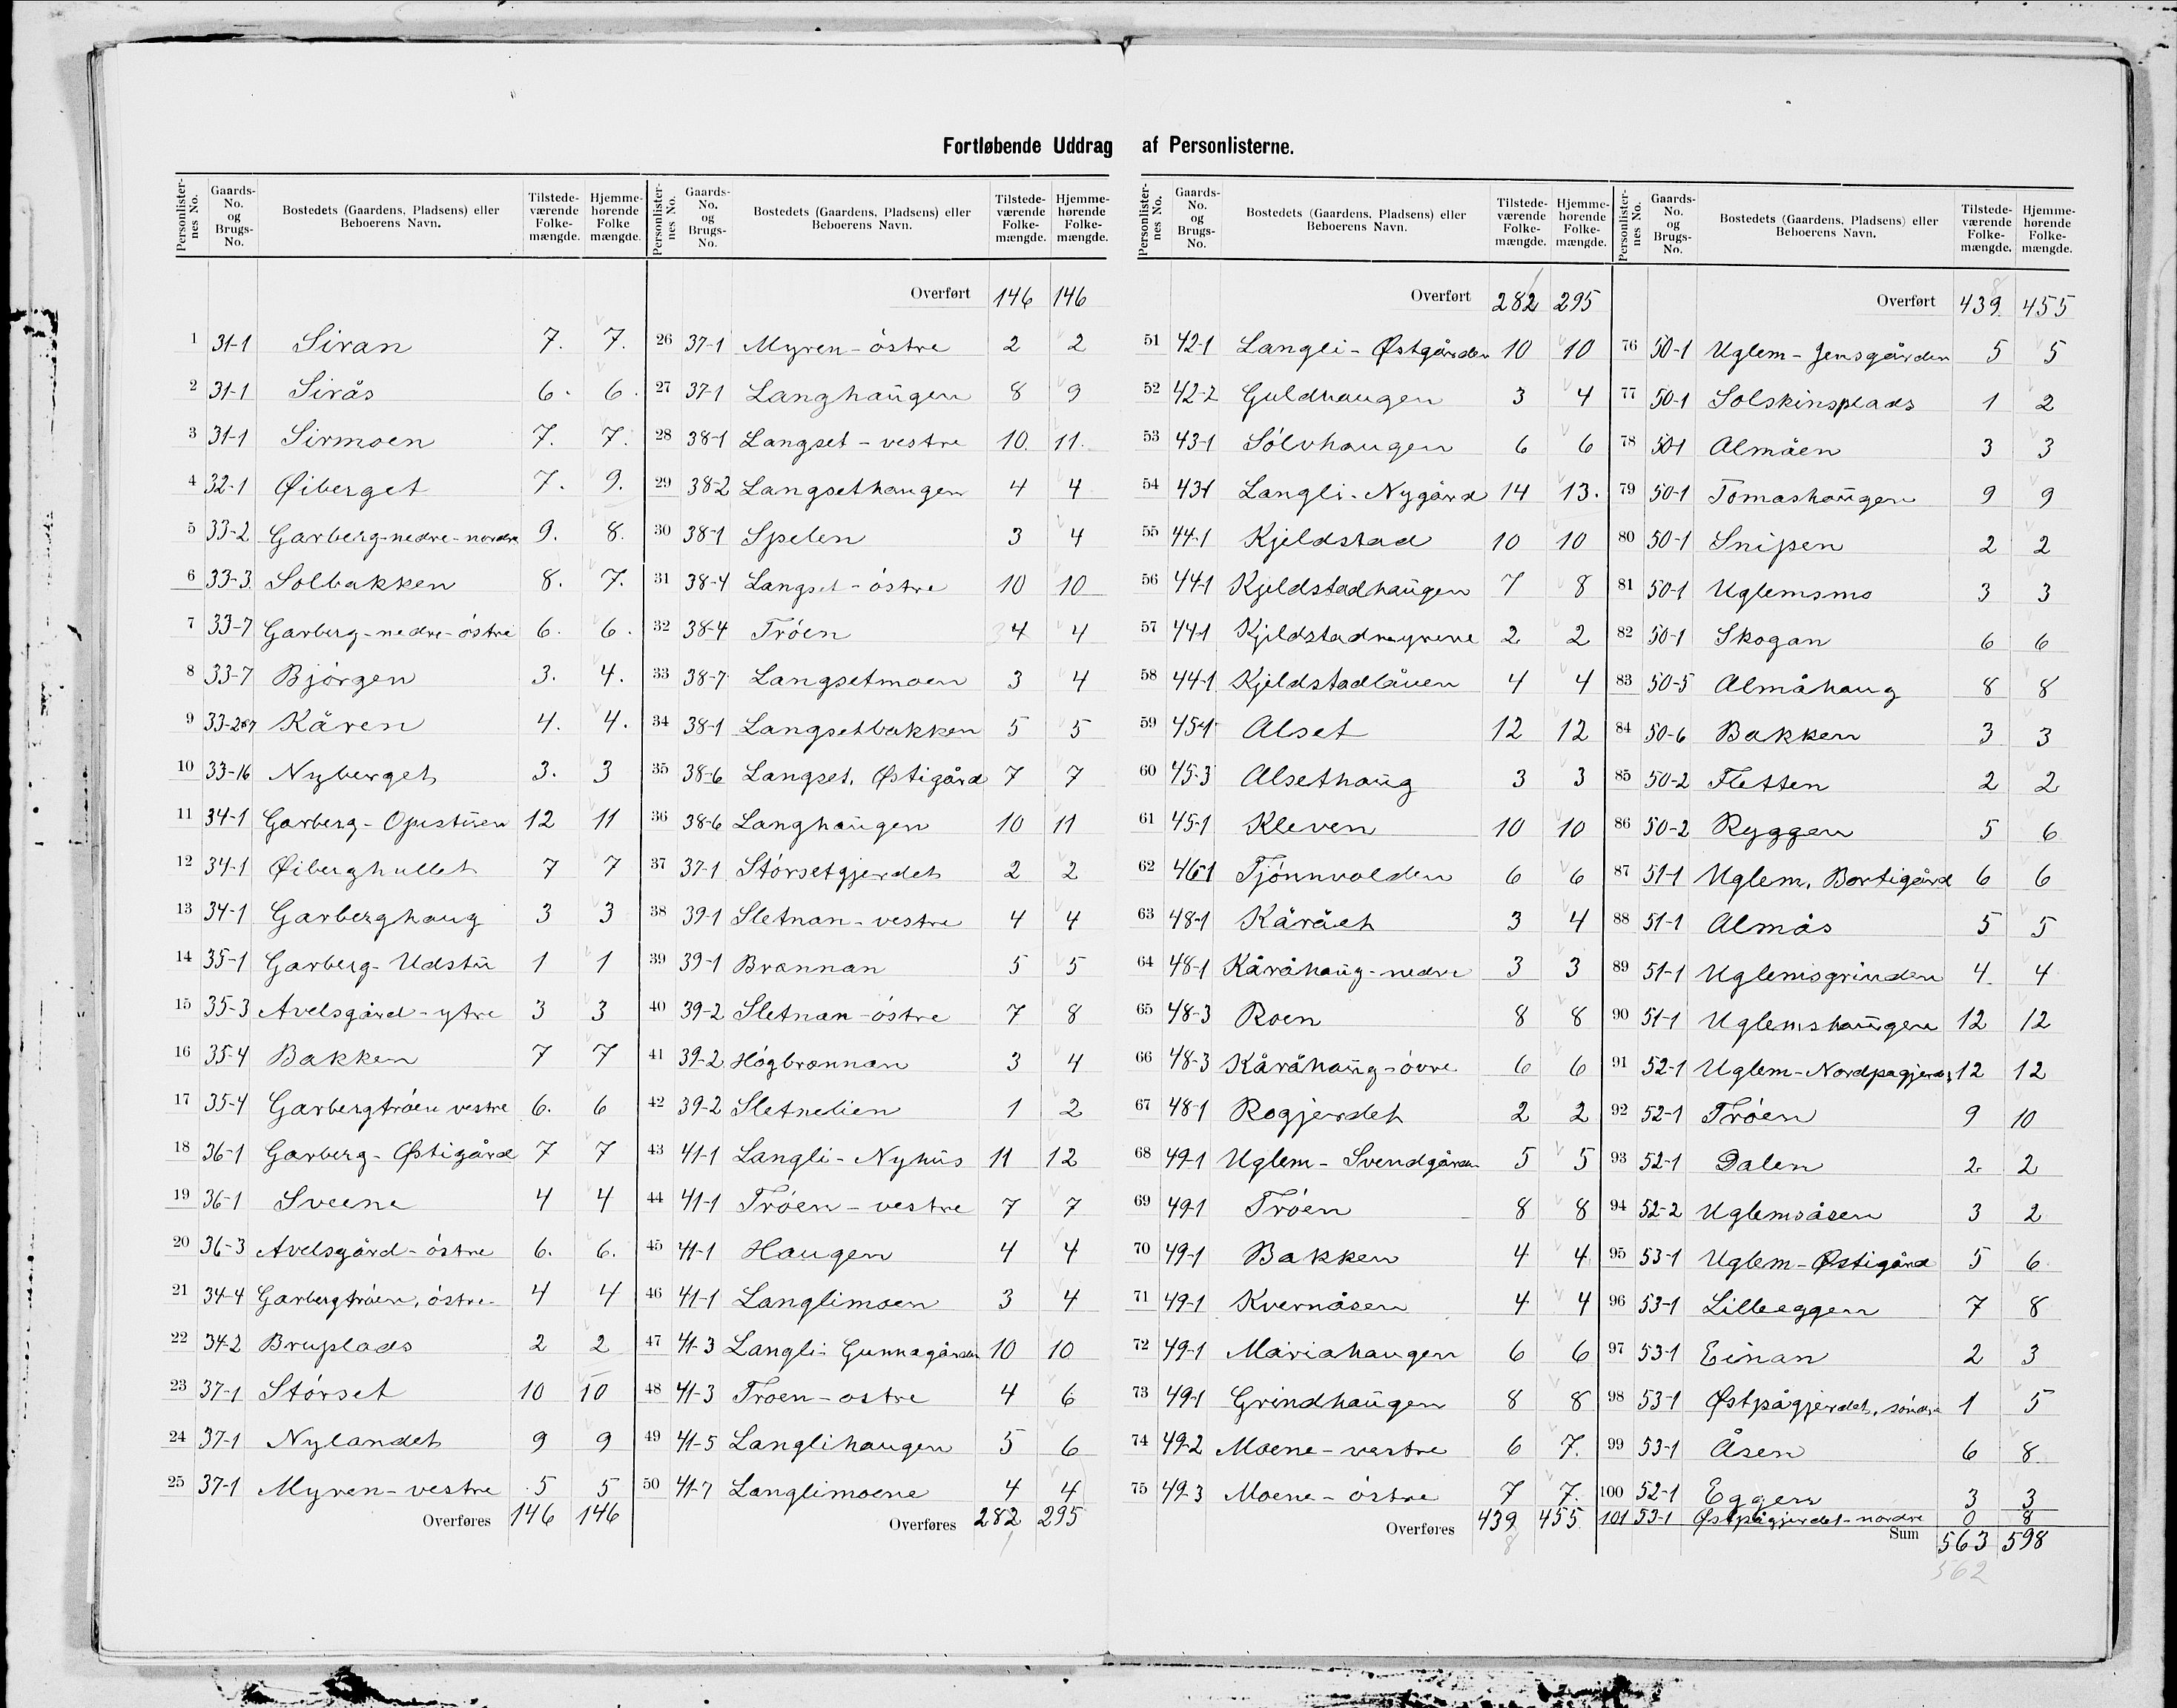 Fortløbende Uddrag af Personlisterne.
Personlisternes No. Gaards-No. og Brugs-No. Bostedets (Gaardens, Pladsens) eller Beboerens Navn. Tilstedeværende Folkemængde. Hjemmehørende Folkemængde.
1 31-1 Siran 7. 7.
2 31-1 Sirås 6. 6.
3 31-1 Sirmoen 7. 7.
4 32-1 Øiberget 7. 9.
5 33-2 Garberg-nedre-nordre 9. 8.
6 33-3 Solbakken 8. 7.
7 33-7 Garberg-nedre-östre 6. 6.
8 33-7 Bjørgen 3. 4.
9 33-2og7 Kåren 4. 4.
10 33-16 Nyberget 3. 3
11 34-1 Garberg-Opistuen 12 11
12 34-1 Øiberghullet 7 7
13 34-1 Garberghaug 3 3
14 35-1 Garberg-Udstu 1 1
15 35-3 Avelsgård-ytre 3 3
16 35-4 Bakken 7 7
17 35-4 Garbergtröen vestre 6. 6
18 36-1 Garberg-Østigård 7 7
19 36-1 Sveene 4 4
20 36-3 Avelsgård-östre 6. 6.
21 34-4 Garbergtröen, östre 4 4
22 34-2 Bruplads 2 2
23 37-1 Störset 10 10
24 37-1 Nylandet 9 9
25 37-1 Myren-vestre 5 5
Overføres 146 146
Personlisternes No. Gaards-No. og Brugs-No. Bostedets (Gaardens, Pladsens) eller Beboerens Navn. Tilstedeværende Folkemængde. Hjemmehørende Folkemængde.
Overført 146 146
26 37-1 Myren-östre 2 2
27 37-1 Langhaugen 8 9
28 38-1 Langset-vestre 10. 11.
29 38-2 Langsethaugen 4 4
30 38-1 Spelen 3 4
31 38-4 Langset-östre 10 10
32 38-4 Tröen 4 4
33 38-7 Langsetmoen 3 4
34 38-1 Langsetbakken 5 5
35 38-6 Langset, Østigård 7 7
36 38-6 Langhaugen 10 11
37 37-1 Störsetgjerdet 2 2
38 39-1 Sletnan-vestre 4 4
39 39-1 Brannan 5 5
40 39-2 Sletnan-östre 7 8
41 39-2 Högbrannan 3 4
42 39-2 Sletnelien 1 2
43 41-1 Langli-Nyhus 11 12
44 41-1 Tröen-vestre 7 7
45 41-1 Haugen 4 4
46 41-1 Langlimoen 3 4
47 41-3 Langli-Gunnagården 10 10
48 41-3 Troen-ostre 4 6
49 41-5 Langlihaugen 5 6
50 41-7 Langlimoene 4 4
Overføres 282 295
1
Personlisternes No. Gaards-No. og Brugs-No. Bostedets (Gaardens, Pladsens) eller Beboerens Navn. Tilstedeværende Folkemængde. Hjemmehørende Folkemængde.
1
Overført 282 295
51 42-1 Langli-Østgården 10 10
52 42-2 Guldhaugen 3 4
53 43-1 Sölvhaugen 6 6
54 43-1 Langli-Nygård 14 13.
55 44-1 Kjeldstad 10 10
56 44-1 Kjeldstadhaugen 7 8
57 44-1 Kjeldstadmyrene 2 2
58 44-1 Kjeldstadlåuen 4 4
59 45-1 Alset 12 12
60 45-3 Alsethaug 3 3
61 45-1 Kleven 10 10
62 46-1 Tjönnvolden 6 6
63 48-1 Kårået 3 4
64 48-1 Kåråhaug-nedre 3 3
65 48-3 Roen 8 8
66 48-3 Kåråhaug-övre 6 6
67 48-1 Rogjerdet 2 2
68 49-1 Uglem-Svendgården 5 5
69 49-1 Tröen 8 8
70 49-1 Bakken 4 4
71 49-1 Kvernåsen 4 4
72 49-1 Mariahaugen 6 6
73 49-1 Grindhaugen 8 8
74 49-2 Moene-vestre 6 7.
75 49-3 Moene-östre 7 7.
Overføres 439 455
8
Personlisternes No. Gaards-No. og Brugs-No. Bostedets (Gaardens, Pladsens) eller Beboerens Navn. Tilstedeværende Folkemængde. Hjemmehørende Folkemængde.
8
Overført 439 455
76 50-1 Uglem-Jensgården 5 5
77 50-1 Solskinsplads 1 2
78 50-1 Almåen 3 3
79 50-1 Tomashaugen 9 9
80 50-1 Snipen 2 2
81 50-1 Uglemsmo 3 3
82 50-1 Skogan 6 6
83 50-5 Almåhaug 8 8
84 50-6 Bakken 3 3
85 50-2 Fletten 2 2
86 50-2 Ryggen 5 6
87 51-1 Uglem, Bortigård 6 6
88 51-1 Almås 5 5
89 51-1 Uglemsgrinden 4 4
90 51-1 Uglemshaugen 12 12
91 52-1 Uglem-Nordpagjerdet 12 12
92 52-1 Tröen 9 10
93 52-1 Dalen 2 2
94 52-2 Uglemsåsen 3 2
95 53-1 Uglem-Østigård 5 6
96 53-1 Lilleeggen 7 8
97 53-1 Einan 2 3
98 53-1 Østpågjerdet, söndre 1 5
99 53-1 Åsen 6 8
100 52-1 Eggen 3 3
101 53-1 Østpågjerdet-nordre 0 8
Sum 563 598
562